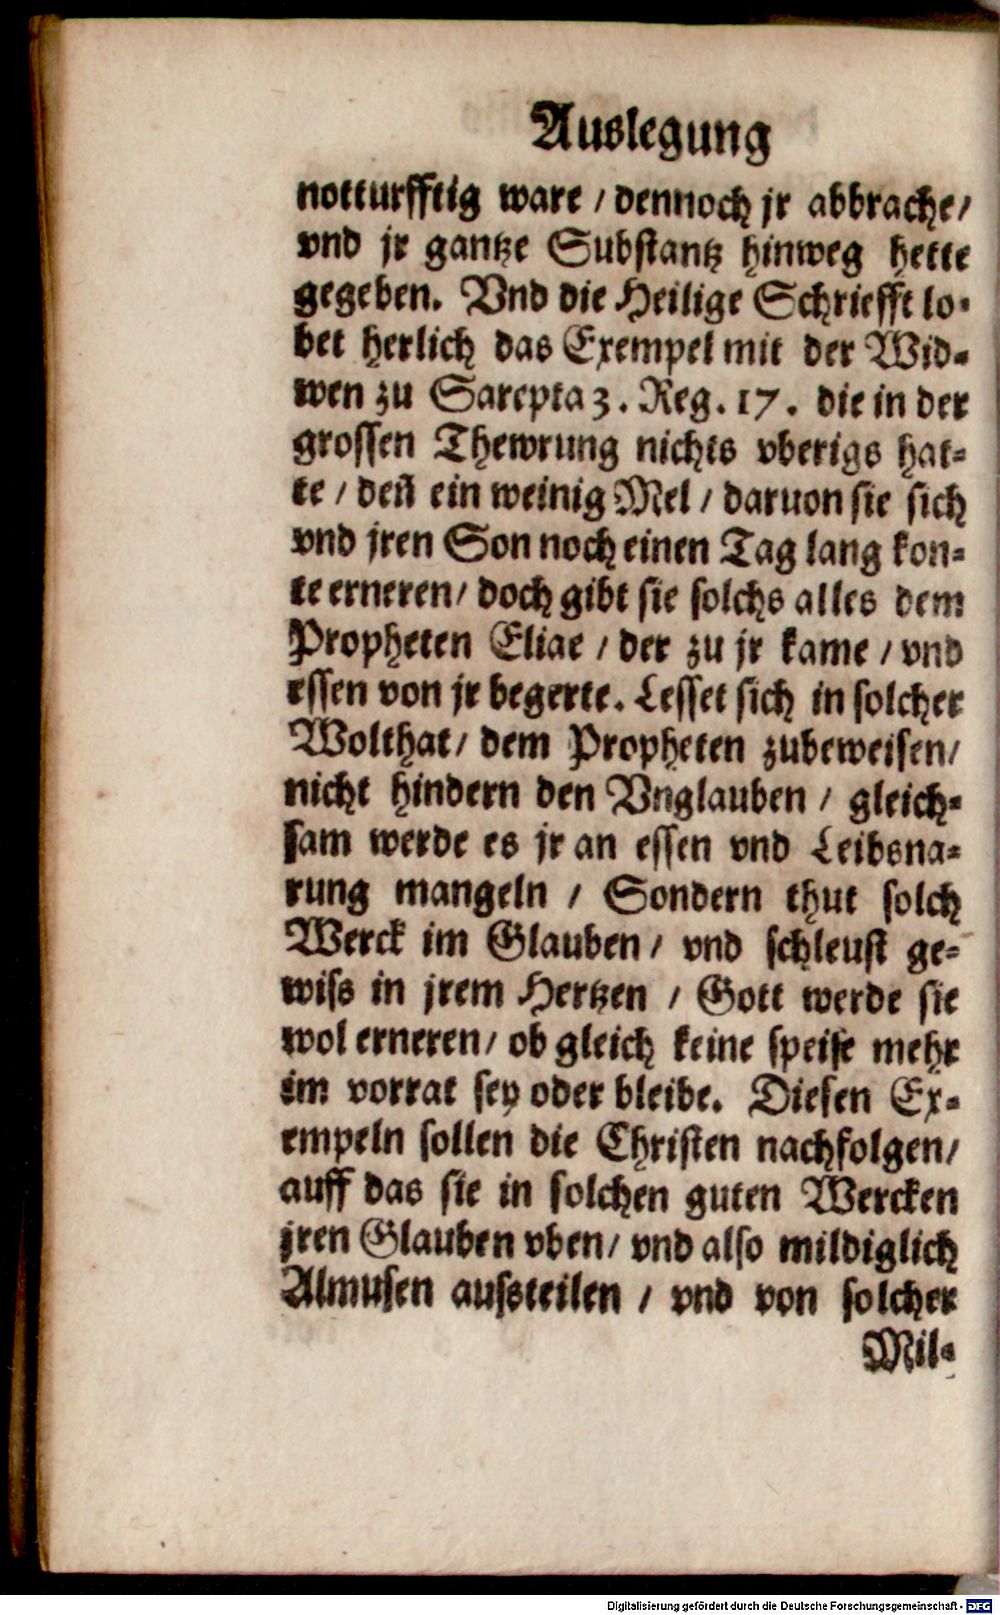 Auslegung
notturfftig ware / dennoch jr abbrache/
vnd jr gantze Substantz hinweg hette
gegeben. Vnd die Heilige Schriefft lo-
bet herlich das Exempel mit der Wid-
wen zu Sarepta 3. Reg. 17. die in der
grossen Thewrung nichts vberigs hat-
te / deñ ein weinig Mel / daruon sie sich
vnd jren Son noch einen Tag lang kon-
te erneren/ doch gibt sie solchs alles dem
Propheten Eliae / der zu jr kame / vnd
essen von jr begerte. Lesset sich in solcher
Wolthat/ dem Propheten zubeweisen/
nicht hindern den Vnglauben / gleich-
sam werde es jr an essen vnd Leibsna-
rung mangeln / Sondern thut solch
Werck im Glauben/ vnd schleust ge-
wiss in jrem Hertzen / Gott werde sie
wol erneren/ ob gleich keine speise mehr
im vorrat sey oder bleibe. Diesen Ex-
empeln sollen die Christen nachfolgen/
auff das sie in solchen guten Wercken
jren Glauben vben/ vnd also mildiglich
Almusen aussteilen / vnd von solcher
Mil-
Digitalisierung gefördert durch die Deutsche Forschungsgemeinschaft - DFG